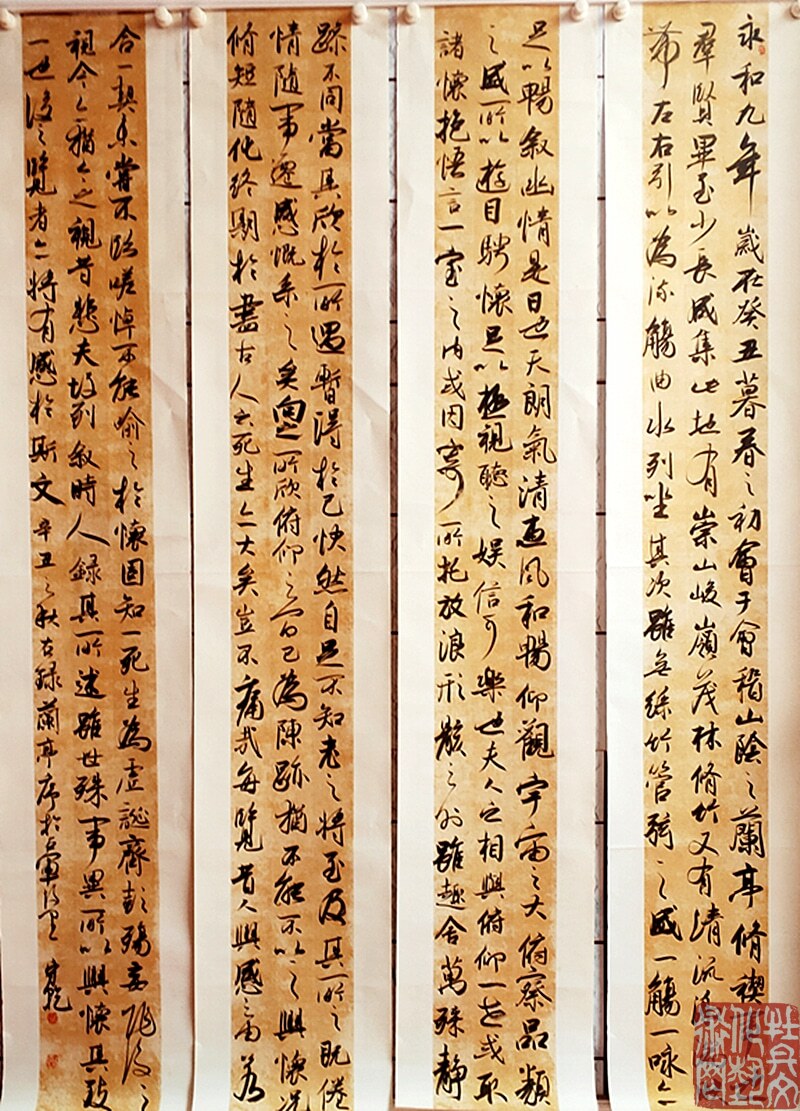 永和九年歲在癸丑暮春之初會于會稽山陰之蘭亭脩禊
羣賢畢至少長咸集此地有崇山峻嶺茂林脩竹又有清流
帶左右引以為流觴曲水列坐其次雖無絲竹管弦之盛一觴一咏亦
足以暢叙幽情是日也天朗氣清惠風和暢仰觀宇宙之大俯察品類
之盛所以遊目騁懷足以極視聽之娛信可樂也夫人之相與俯仰一世或取
諸懷抱悟言一室之內或因寄所托放浪形骸之外雖趣舍萬殊靜
躁不同當其欣於所遇暫得於己快然自足不知老之將至及其所之既倦
情隨事遷感慨系之矣向之所欣俯仰之間已為陳跡猶不能不以之興懷況
脩短隨化終期於盡古人云死生亦大矣豈不痛哉每覽昔人興感之由若
合一契未嘗不臨嗟悼不能喻之於懷固知一死生為虛誕齊彭殤妄作後之
視今亦猶今之視昔悲夫故列叙時人錄其所述雖世殊事異所以興懷其致
一也後之覽者亦將有感於斯文 辛丑之秋 右錄蘭亭序於